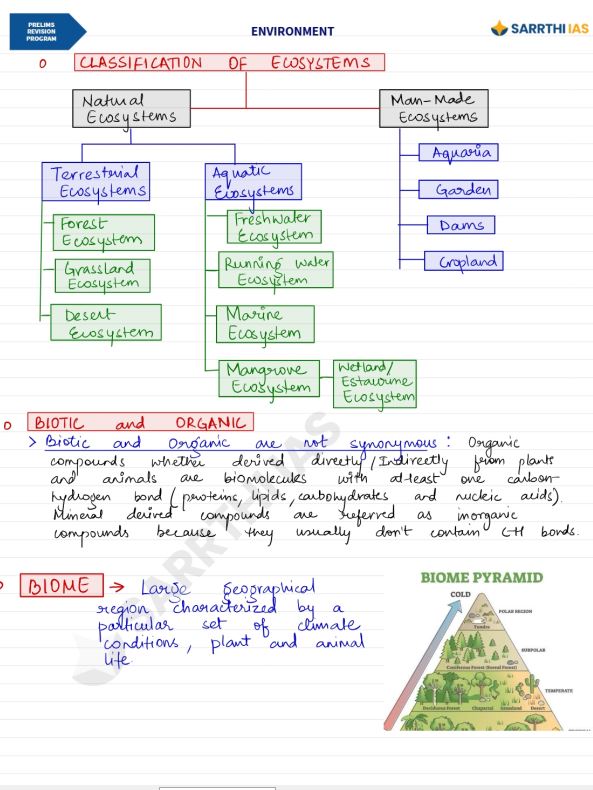 PRELIMS
REVISION
PROGRAM
ENVIRONMENT
SARRTHI IAS
CLASSIFICATION OF ECOSYSTEMS
Natural
Ecosystems
Man-Made
Ecosystems
Terrestrial
Ecosystems
Aquatic
Ecosystems
Aquaria
Garden
Dams
Cropland
Forest
Ecosystem
Grassland
Ecosystem
Desert
Ecosystem
Freshwater
Ecosystem
Running water
Ecosystem
Marine
Ecosystem
Mangrove
Ecosystem
Wetland/
Ecosystem
BIOTIC and ORGANIC
> Biotic and Organic are not synonymous : Organic
compounds whether derived directly/Indirectly from plants
and animals are biomolecules with at-least one carbon-
hydrogen bond (proteins, lipids, carbohydrates and nucleic acids).
Mineral derived compounds are referred as inorganic
compounds because they usually don't contain C-H bonds.
SARRTHI IAS
BIOME → Large geographical
region characterized by a
particular set of climate
conditions, plant and animal
life.
BIOME PYRAMID
COLD
POLAR REGION
Tundra
SUBPOLAR
Coniferous Forest (Boreal Forest)
TEMPERATE
Deciduous Forest Chaparral Grassland Desert